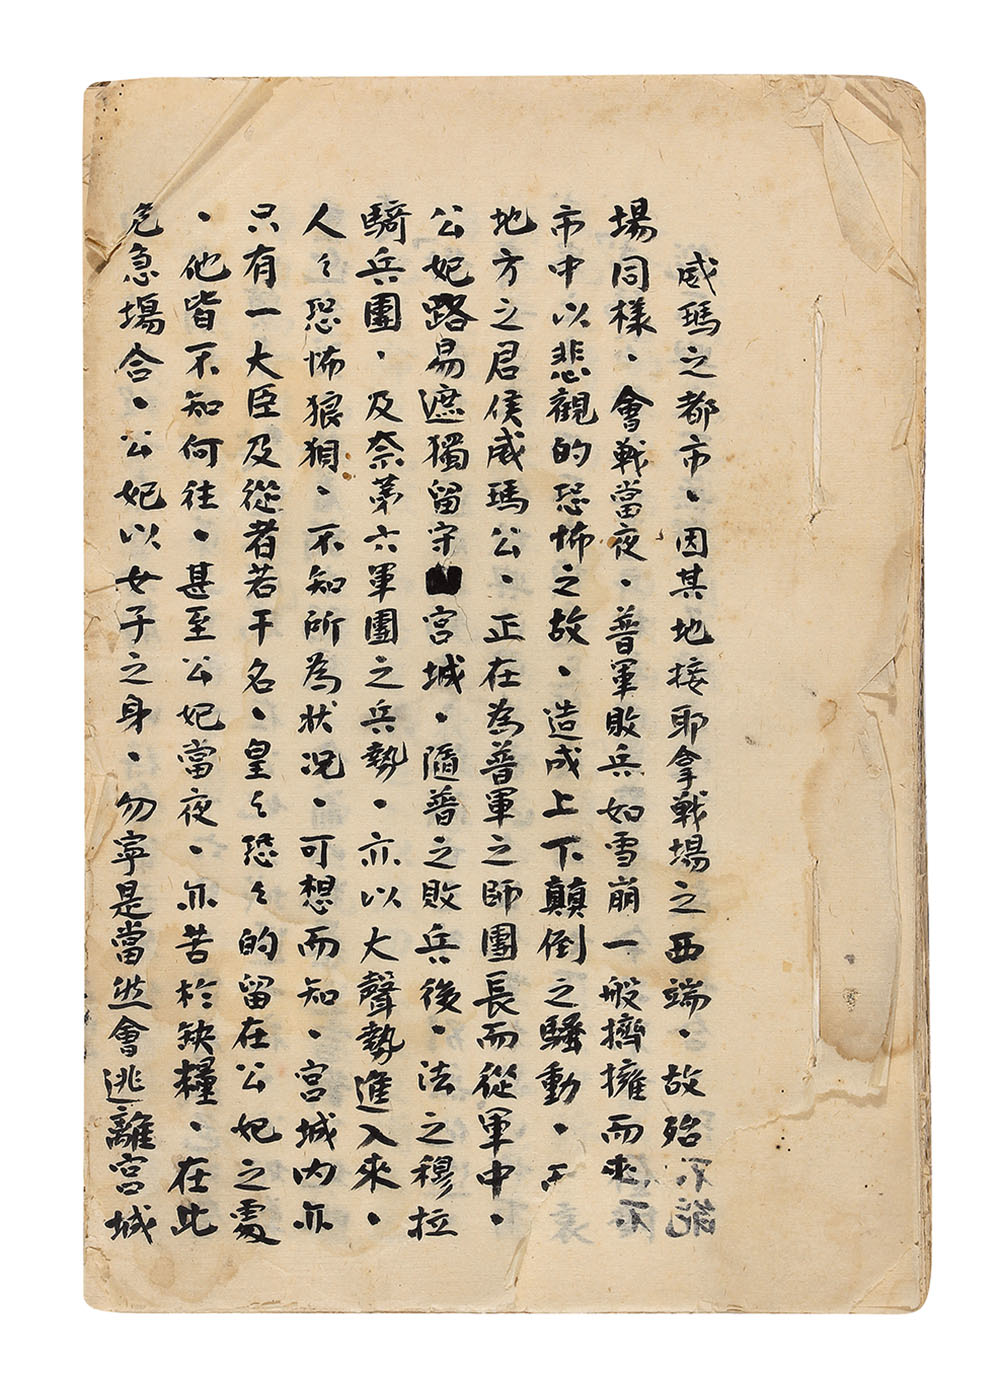 威瑪之都市、因其地接耶拿戰場之西端、故殆
場同樣、會戰當夜、普軍敗兵如雪崩一般擠擁而來
市中以悲觀的恐怖之故、造成上下顛倒之騷動、
地方之君侯威瑪公、正在為普軍之師團長而從軍中、
公妃路易遮獨留守宮城、隨普之敗兵後、法之穆拉
騎兵團、及奈第六軍團之兵勢、亦以大聲勢進入來、
人々恐怖狼狽、不知所為狀况、可想而知、宮城內亦
只有一大臣及從者若干名、皇々恐々的留在公妃之處
、他皆不知何往、甚至公妃當夜、亦苦於缺糧、在此
危急塲合、公妃以女子之身、勿寧是當然會逃離宮城